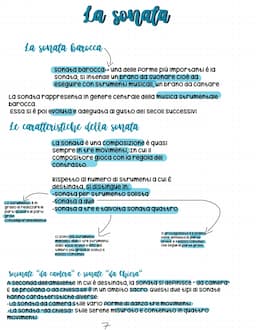 La sonata
La sonata barocca
sonata barocca- una delle forme più importanti è la
sonata, si intende un brano da suonare cioè da
eseguire con strumenti musicali, un brano da cantare
La sonata rappresenta in genere centrale della musica strumentale
barocca.
Essa si è poi evoluta e adeguata al gusto dei secoli successivi
Le caratteristiche della sonata
La sonata è una composizione è quasi
sempre in tre movimenti, in cui il
compositore gioca con la regola del
contrasto
Rispetto al numero di strumenti a cui è
destinata, si distingue in:
-sonata per strumento solista
-sonata a due
-sonata a tre e talvolta sonata quattro
Suonate "da camera" e sonate "da chiesa"
A seconda dell'ambiente in cui è destinata, la sonata si definisce - da camera
E se profano o da chiesa se è in un ambito sacro. Questi due tipi di sonate
hanno caratteristiche diverse:
-La sonata da camera: stile vario forme di danza tre movimenti
-La sonata da chiesa: stile sereno misurato e contenuto in quattro
movimenti
7